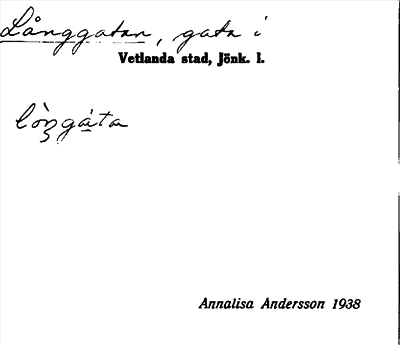 Långgatan, gata i
Vetlanda stad, Jönk. l.
lòŋgáta
Annalisa Andersson 1938